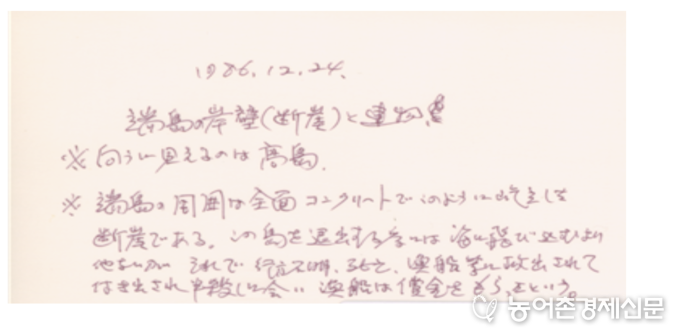 1986.12.24.
端島の岸壁(断崖)と建物
※向うに見えるのは高島.
※端島の周囲は全面コンクリートでこのように屹立した
断崖である。この島を退出するには海に飛び込むより
他ないが それで行方不明、死亡、漁船等に救出されて
漁船は 金をもらったという。
농어촌경제신문